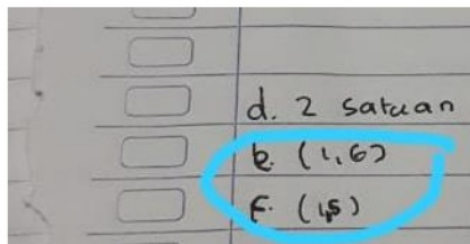 d. 2 satuan
e. (1,6)
f. (1,5)